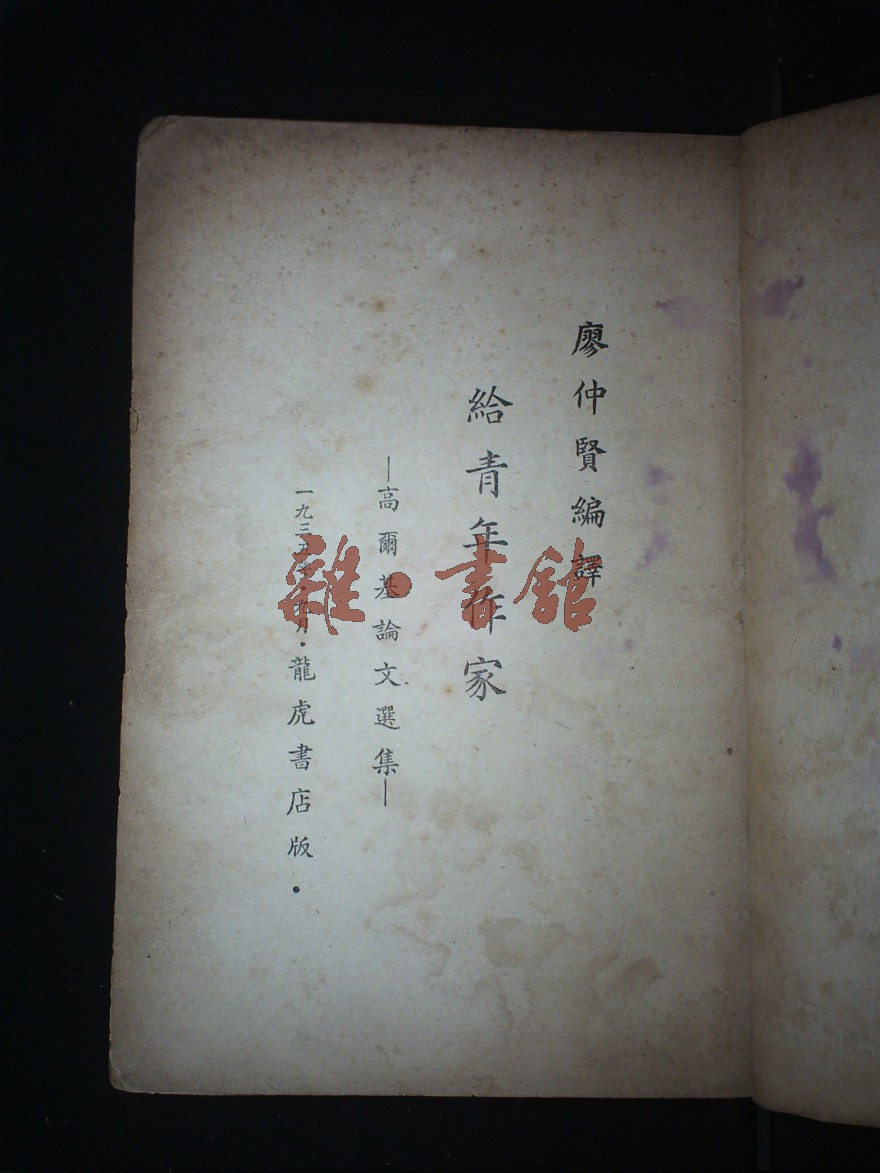 廖仲賢編譯
給青年作家
—高爾基論文選集—
一九三五年·九月·龍虎書店版·
雜·書館